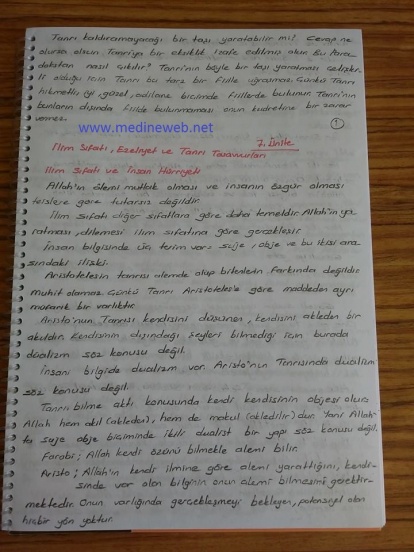 Tanrı kaldıramayacağı bir taşı yaratabilir mi? Cevap ne
olursa olsun Tanrıya bir eksiklik izafe edilmiş olur. Bu Para-
dokstan nasıl çıkılır? Tanrı'nın böyle bir taşı yaratması çelişki-
li olduğu için Tanrı bu tarz bir fiille uğraşmaz. Çünkü Tanrı
hikmetli, iyi, güzel, adilane biçimde fiillerde bulunur. Tanrı'nın
bunların dışında fiilde bulunmaması onun kudretine bir zarar
vermez.
www.medineweb.net
1
7. Ünite
İlim Sıfatı, Ezeliyet ve Tanrı Tasavvurları
İlim Sıfatı ve İnsan Hürriyeti
Allah'ın ilmi mutlak olması ve insanın özgür olması
teistlere göre tutarsız değildir.
İlim sıfatı diğer sıfatlara göre daha temeldir. Allah'ın ya-
ratması, dilemesi ilim sıfatına göre gerçekleşir.
İnsan bilgisinde üç terim var: suje, obje ve bu ikisi ara-
sındaki ilişki.
Aristotelesin tanrısı alemde olup bitenlerin farkında değildir.
Muhit olamaz. Çünkü Tanrı Aristoteles'e göre maddeden ayrı
mufarık bir varlıktır.
Aristo'nun Tanrısı kendisini düşünen, kendisini akleden bir
akıldır. Kendisinin dışındaki şeyleri bilmediği için burada
düalizm söz konusu değil.
İnsani bilgide dualizm var. Aristo'nun Tanrısında dualizm
söz konusu değil.
Tanrı bilme aktı konusunda kendi kendisinin objesi olur.
Allah hem akıl (akleden), hem de makul (akledilir) dur. Yani Allah-
ta suje obje biçiminde ikili dualist bir yapı söz konusu değil.
Farabi; Allah kendi özünü bilmekle alemi bilir.
Aristo; Allah'ın kendi ilmine göre alemi yarattığını, kendi-
sinde var olan bilginin onun alemi bilmesini gerektir-
mektedir. Onun varlığında gerçekleşmeyi bekleyen, potansiyel olan
hiçbir yön yoktur.